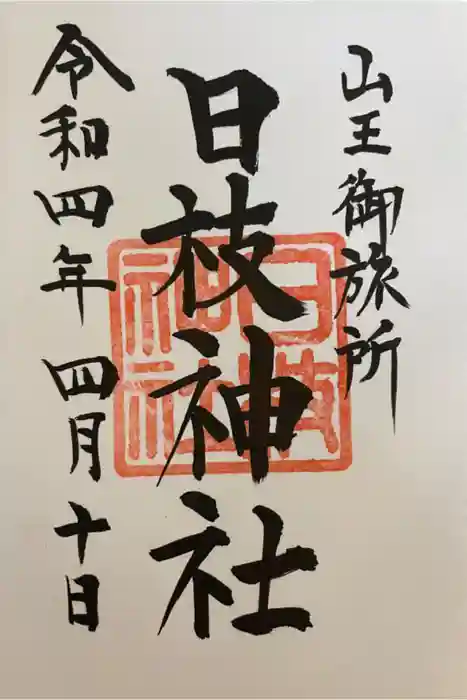 山王御旅所
日枝神社
令和四年四月十日
日枝神社